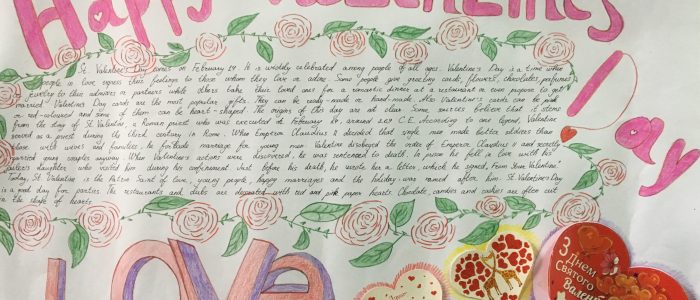 Happy Valentine's Day
St. Valentine's Day comes on February 14. It is widely celebrated among people of all ages. Valentine's Day is a time when
people in love express their feelings to those whom they love or adore. Some people give greeting cards, flowers, chocolates, perfumes
to their admirers or partners while others take their loved ones for a romantic dinner at a restaurant or even propose to get
married. Valentine's Day cards are the most popular gifts. They can be ready-made or hand-made. Also Valentine's cards can be pink
or red-coloured and some of them can be heart-shaped. The origin of this day are not clear. Some sources believe that it stems
from the story of St. Valentine a Roman priest who was executed at February 14, around 269 C.E. According to one legend, Valentine
served as a priest during the third century in Rome. When Emperor Claudius II decided that single men made better soldiers than
those with wives and families, he forbade marriage for young men. Valentine disobeyed the order of Emperor Claudius II and secretly
married young couples anyway. When Valentine's actions were discovered, he was sentenced to death. In prison he fell in love with his
daughter, who visited him during his confinement. Just before his death he wrote her a letter, which he signed "From Your Valentine".
Today, St. Valentine is the Patron Saint of love, young people, happy marriages and the holiday was named after him. St. Valentine's Day
is a good day for parties. The restaurants and clubs are decorated with red and pink paper hearts. Chocolate, candies and cookies are often cut
in the shape of hearts.
LOVE
З
Днем
Святого